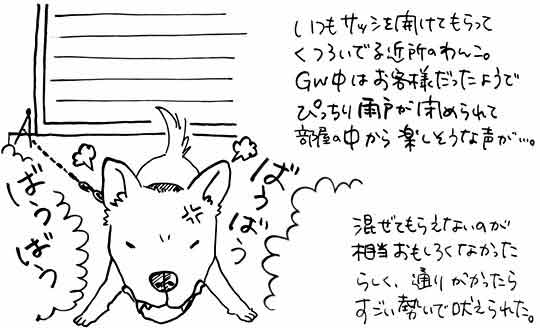 いつもサッシを開けてもらって
くつろいでる近所のわんこ。
GW中はお客様だったようで
ぴっちり雨戸が閉められて
部屋の中から楽しそうな声が…。
ばうばう
ばうばう
混ぜてもらえないのが
相当おもしろくなかった
らしく、通りがかったら
すごい勢いで吠えられた。